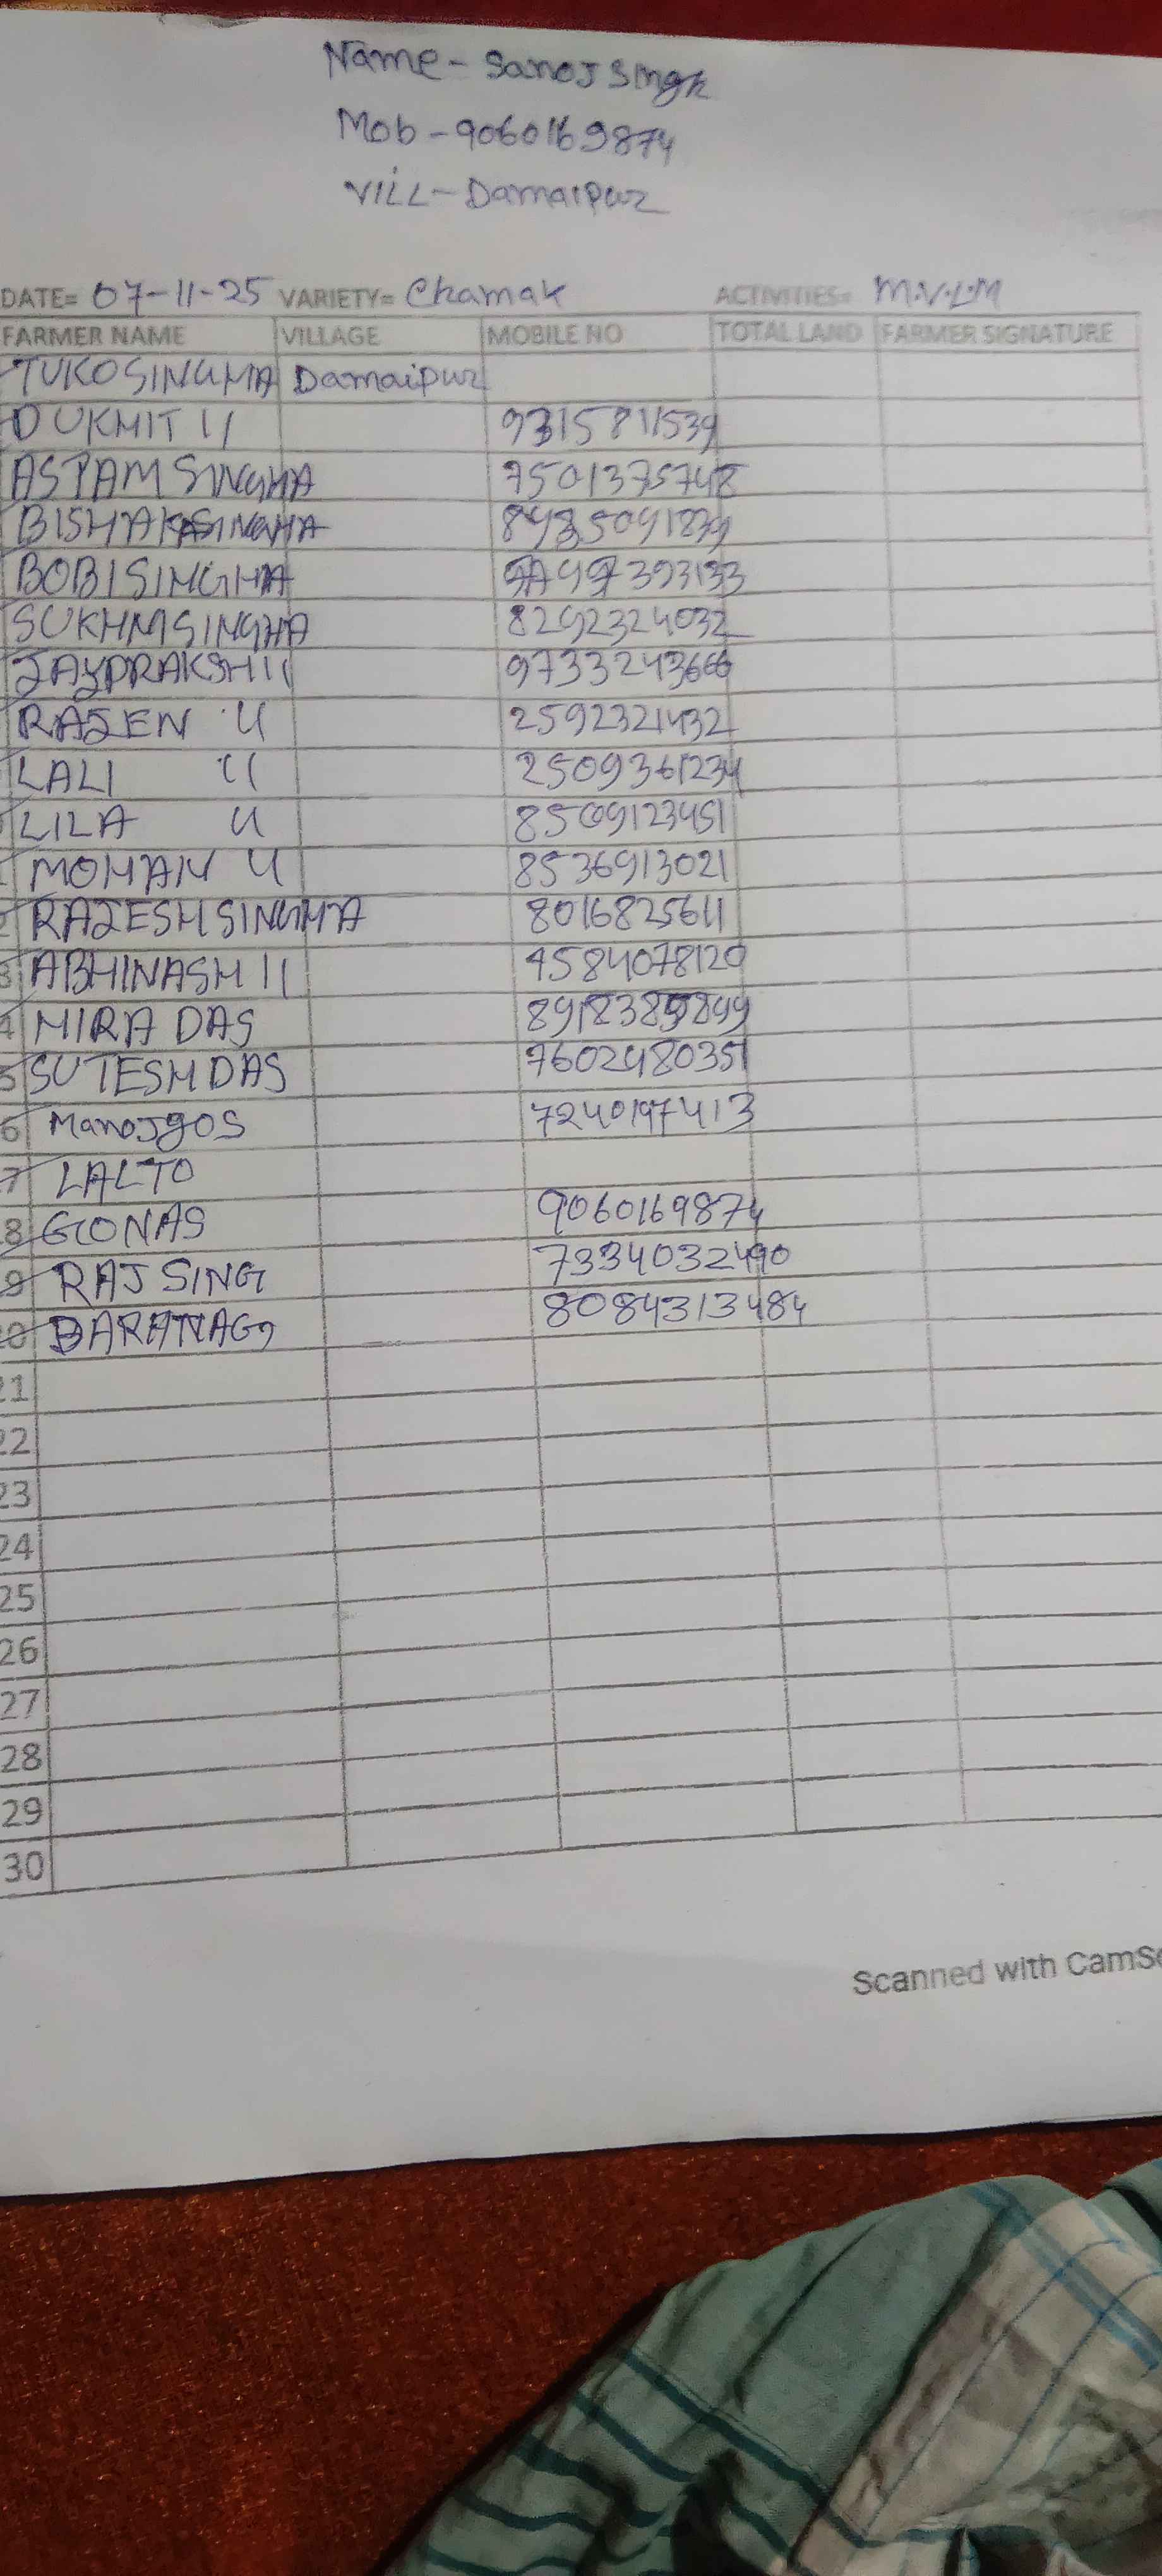 Name - Sanoj Singh
Mob - 9060169874
VILL - Damaipur
DATE= 07-11-25 VARIETY= Chamak ACTIVITIES= M.V.L.M
FARMER NAME VILLAGE MOBILE NO TOTAL LAND FARMER SIGNATURE
TUKOSINGHA Damaipur
DUKHIT 11 9315811539
ASTAM SINGHA 7501375748
BISHAKASINGHA
BOBISINGHA
SUKHMSINGHA 8292324032
JAYPRAKSH 11 9733243666
RAJEN 11 2592321432
LALI 11 2509361234
LILA 11 8509123451
MOHAN 11 8536913021
RAJESH SINGHA 8016825611
ABHINASH 11 4584078120
4 MIRA DAS
5 SUTESH DAS 7602480351
6 Manojgos 7240197413
7 LALTO
8 GONAS 9060169874
9 RAJ SING 7334032490
20 8084313484
21
22
23
24
25
26
27
28
29
30
Scanned with